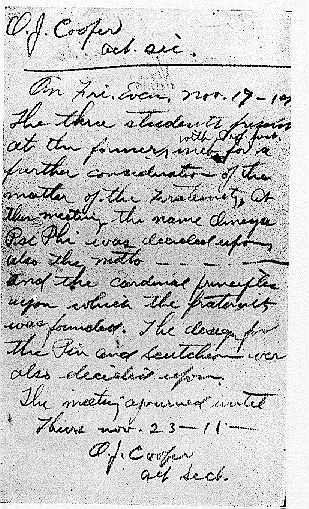 O. J. Cooper
act. sec.
On Fri. Even. Nov. 17-19
The three students present
at the former, met with Prof. Just for a
further consideration of the
matter of the Fraternity, at
this meeting the name Omega
Psi Phi was decided upon,
also the motto — — —
and the cardinal principles
upon which the fraternity
was founded. The design for
the Pin and Scutcheon wer
also decided upon.
The meeting ajourned until
Thurs nov. 23-11—
O. J. Cooper
act sect.